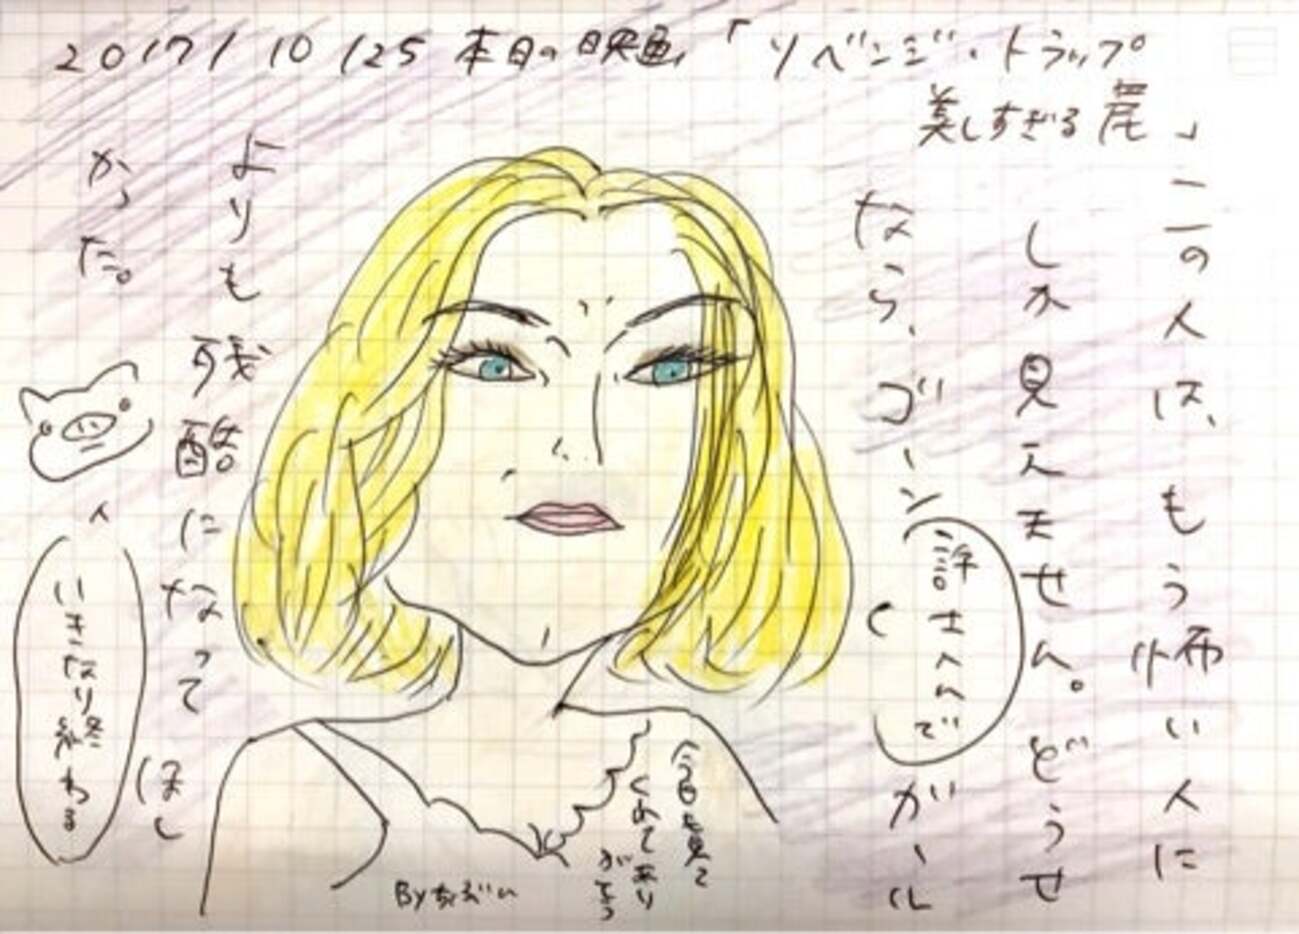 2017/10/25 本日の映画「リベンジ・トラップ
美しすぎる罠」
この人は、もう怖い人に
しか見えません。どうせ
なら、ゴーンガール
許せへんで
よりも残酷になってほし
かった。
いきなり終わる
今日も見て
くれてあり
がとう
By